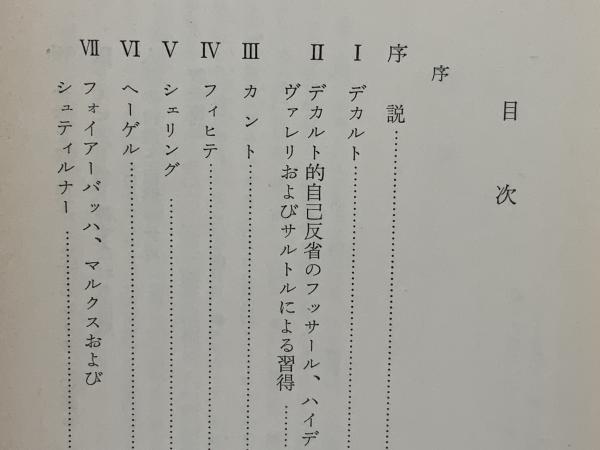 目次
序
序説
Ⅰ デカルト
Ⅱ デカルト的自己反省のフッサール、ハイデ
ヴァレリおよびサルトルによる習得
Ⅲ カント
Ⅳ フィヒテ
Ⅴ シェリング
Ⅵ ヘーゲル
Ⅶ フォイアーバッハ、マルクスおよび
シュティルナー